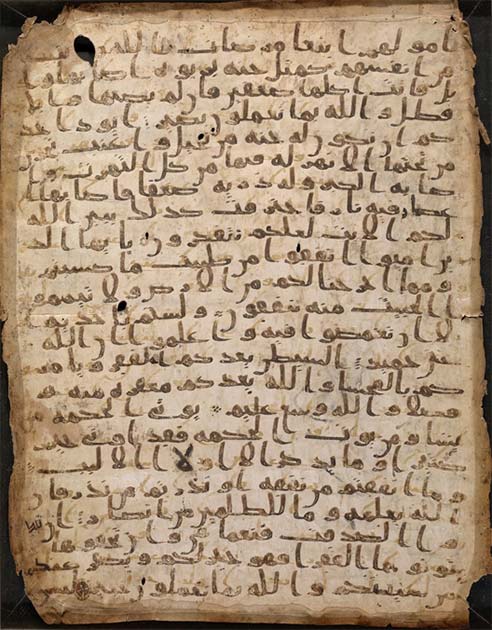 امولهم ابتغا مرضات الله وتثبيتا
من انفسهم كمثل جنة بربوة اصابها وا
بل فاتت اكلها ضعفين فان لم يصبها وابل
فطل والله بما تعملون بصير ايود احد
كم ان تكون له جنة من نخيل واعنب تجري
من تحتها الانهر له فيها من كل الثمرت وا
صابه الكبر وله ذرية ضعفا فاصابها
اعصار فيه نار فاحترقت كذلك يبين الله
لكم الايت لعلكم تتفكرون يايها الذ
ين امنوا انفقوا من طيبت ما كسبتم
ومما اخرجنا لكم من الارض ولا تيمموا
الخبيث منه تنفقون ولستم باخذيه
الا ان تغمضوا فيه واعلموا ان الله
غني حميد الشيطن يعدكم الفقر ويامر
كم بالفحشا والله يعدكم مغفرة منه و
فضلا والله وسع عليم يوتي الحكمة من
يشا ومن يوت الحكمة فقد اوتي خيرا
كثيرا وما يذكر الا اولوا الالبب
وما انفقتم من نفقة او نذرتم من نذر فان
الله يعلمه وما للظلمين من انصار ان
تبدوا الصدقت فنعما هي وان تخفوها
وتوتوها الفقرا فهو خير لكم ويكفر عنكم
من سيتكم والله بما تعملون خبير ليس